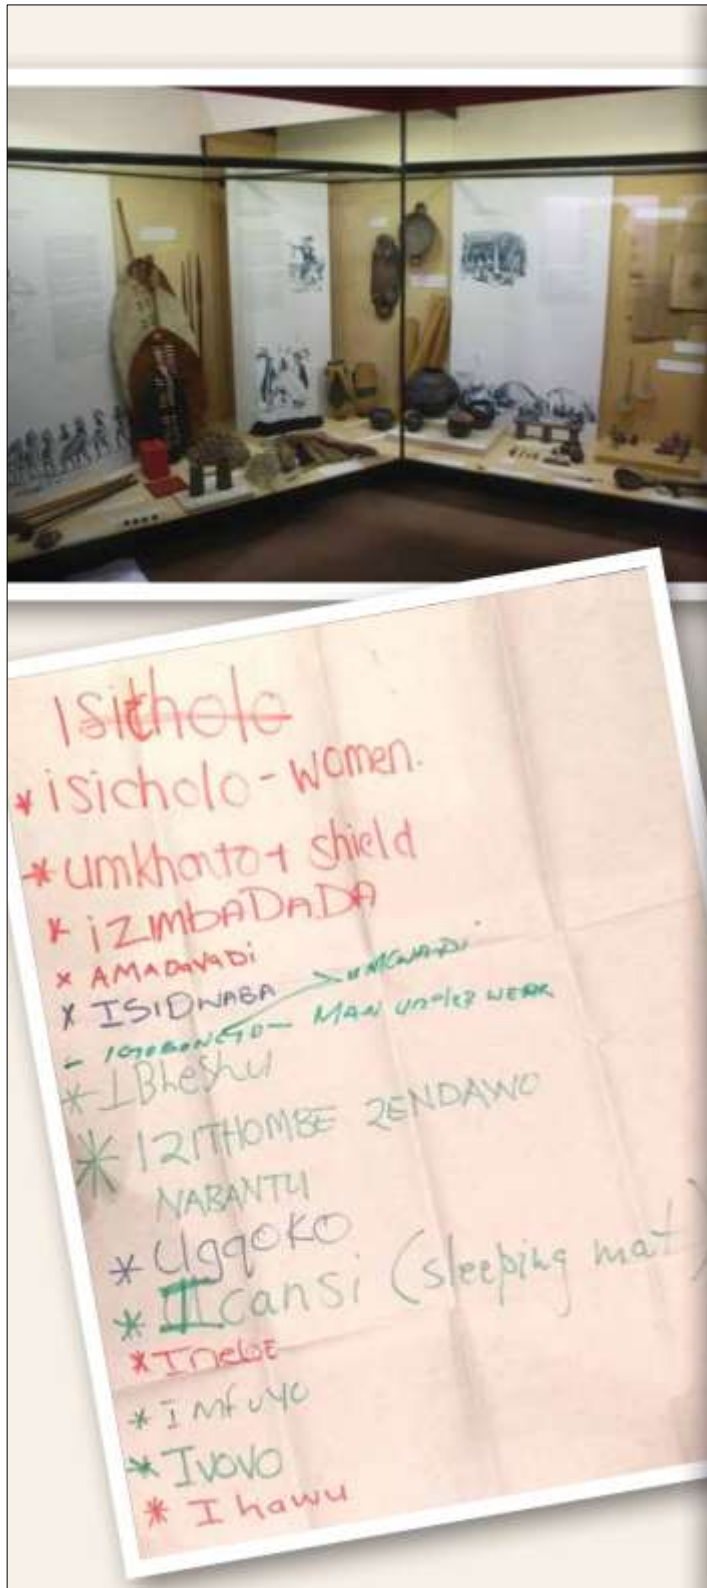 Isitholo
* isicholo - women.
* umkhonto + shield
* iZIMbADADA
* AMADAVADi
* ISIDWABA
MAN under WEAR
* IBheshu
* IZITHOMBE ZENDAWO
NABANTU
* Ugqoko
* Icansi (sleeping mat)
* Inebe
* imfuyo
* Ivovo
* Ihawu